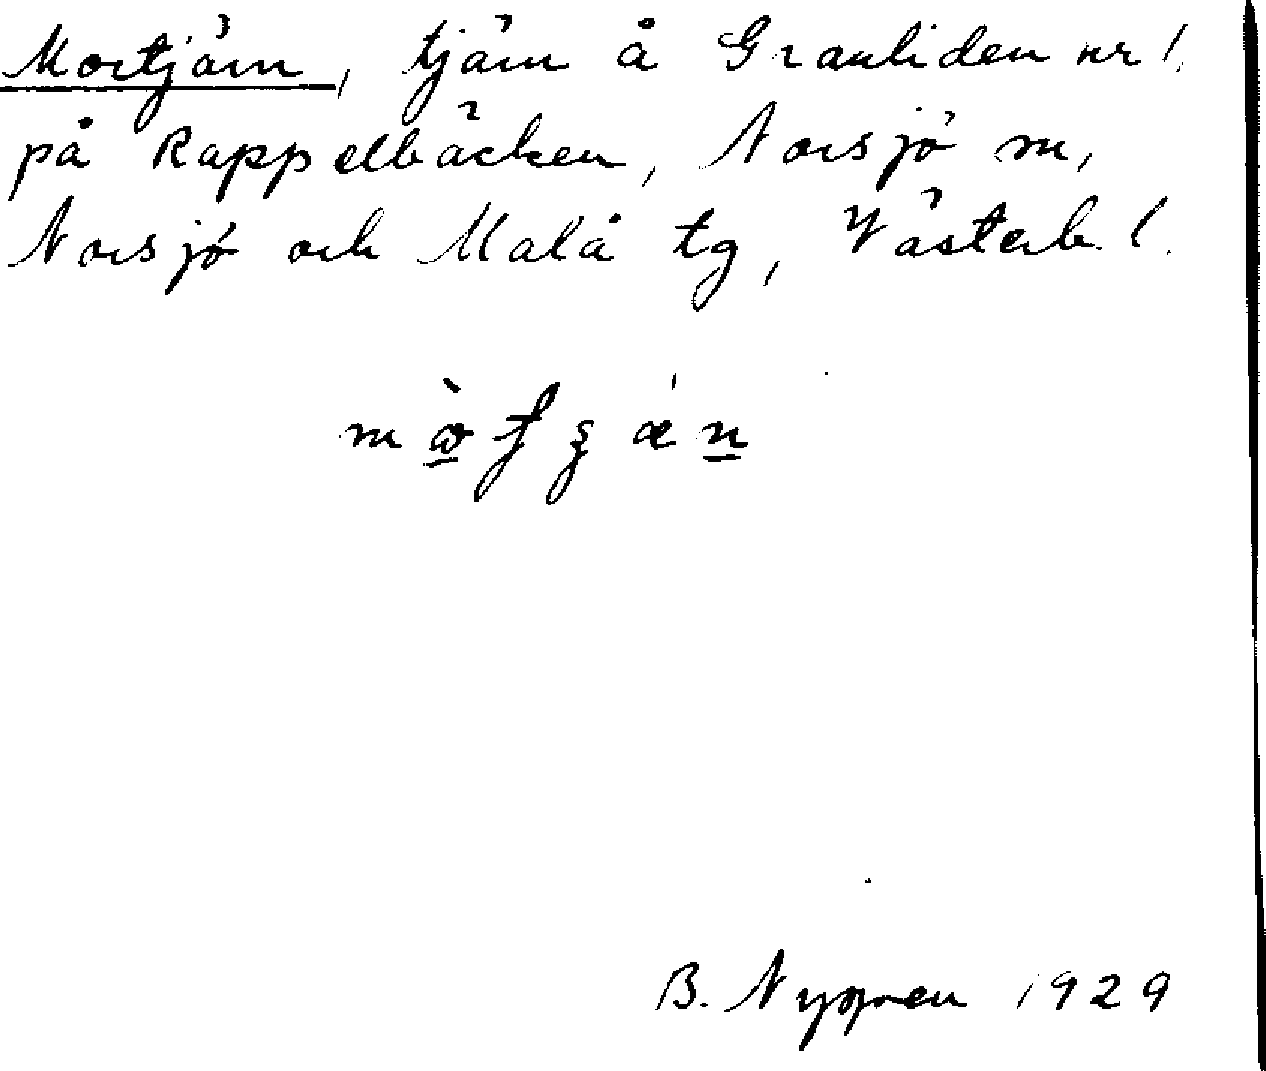 Mortjärn, tjärn å Granliden nr 1
på Rappelbäcken, Norsjö sn,
Norsjö och Malå tg, Västerb. l.
B. Nygren 1929